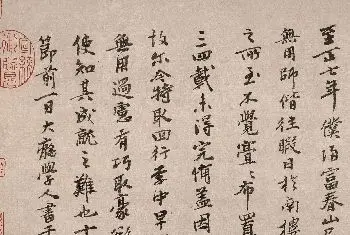 至正七年僕歸富春山居
無用師偕往暇日於南樓
之所至不覺亹亹布置
三四載未得完備蓋因
故尔今特取回行李中早
無用過慮有巧取豪
使知其成就之難也十
節前一日大癡學人書于